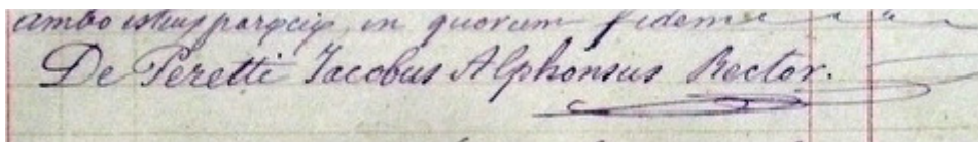 ambo istius paræciæ, in quorum fidem
De Peretti Jacobus Alphonsus Rector.